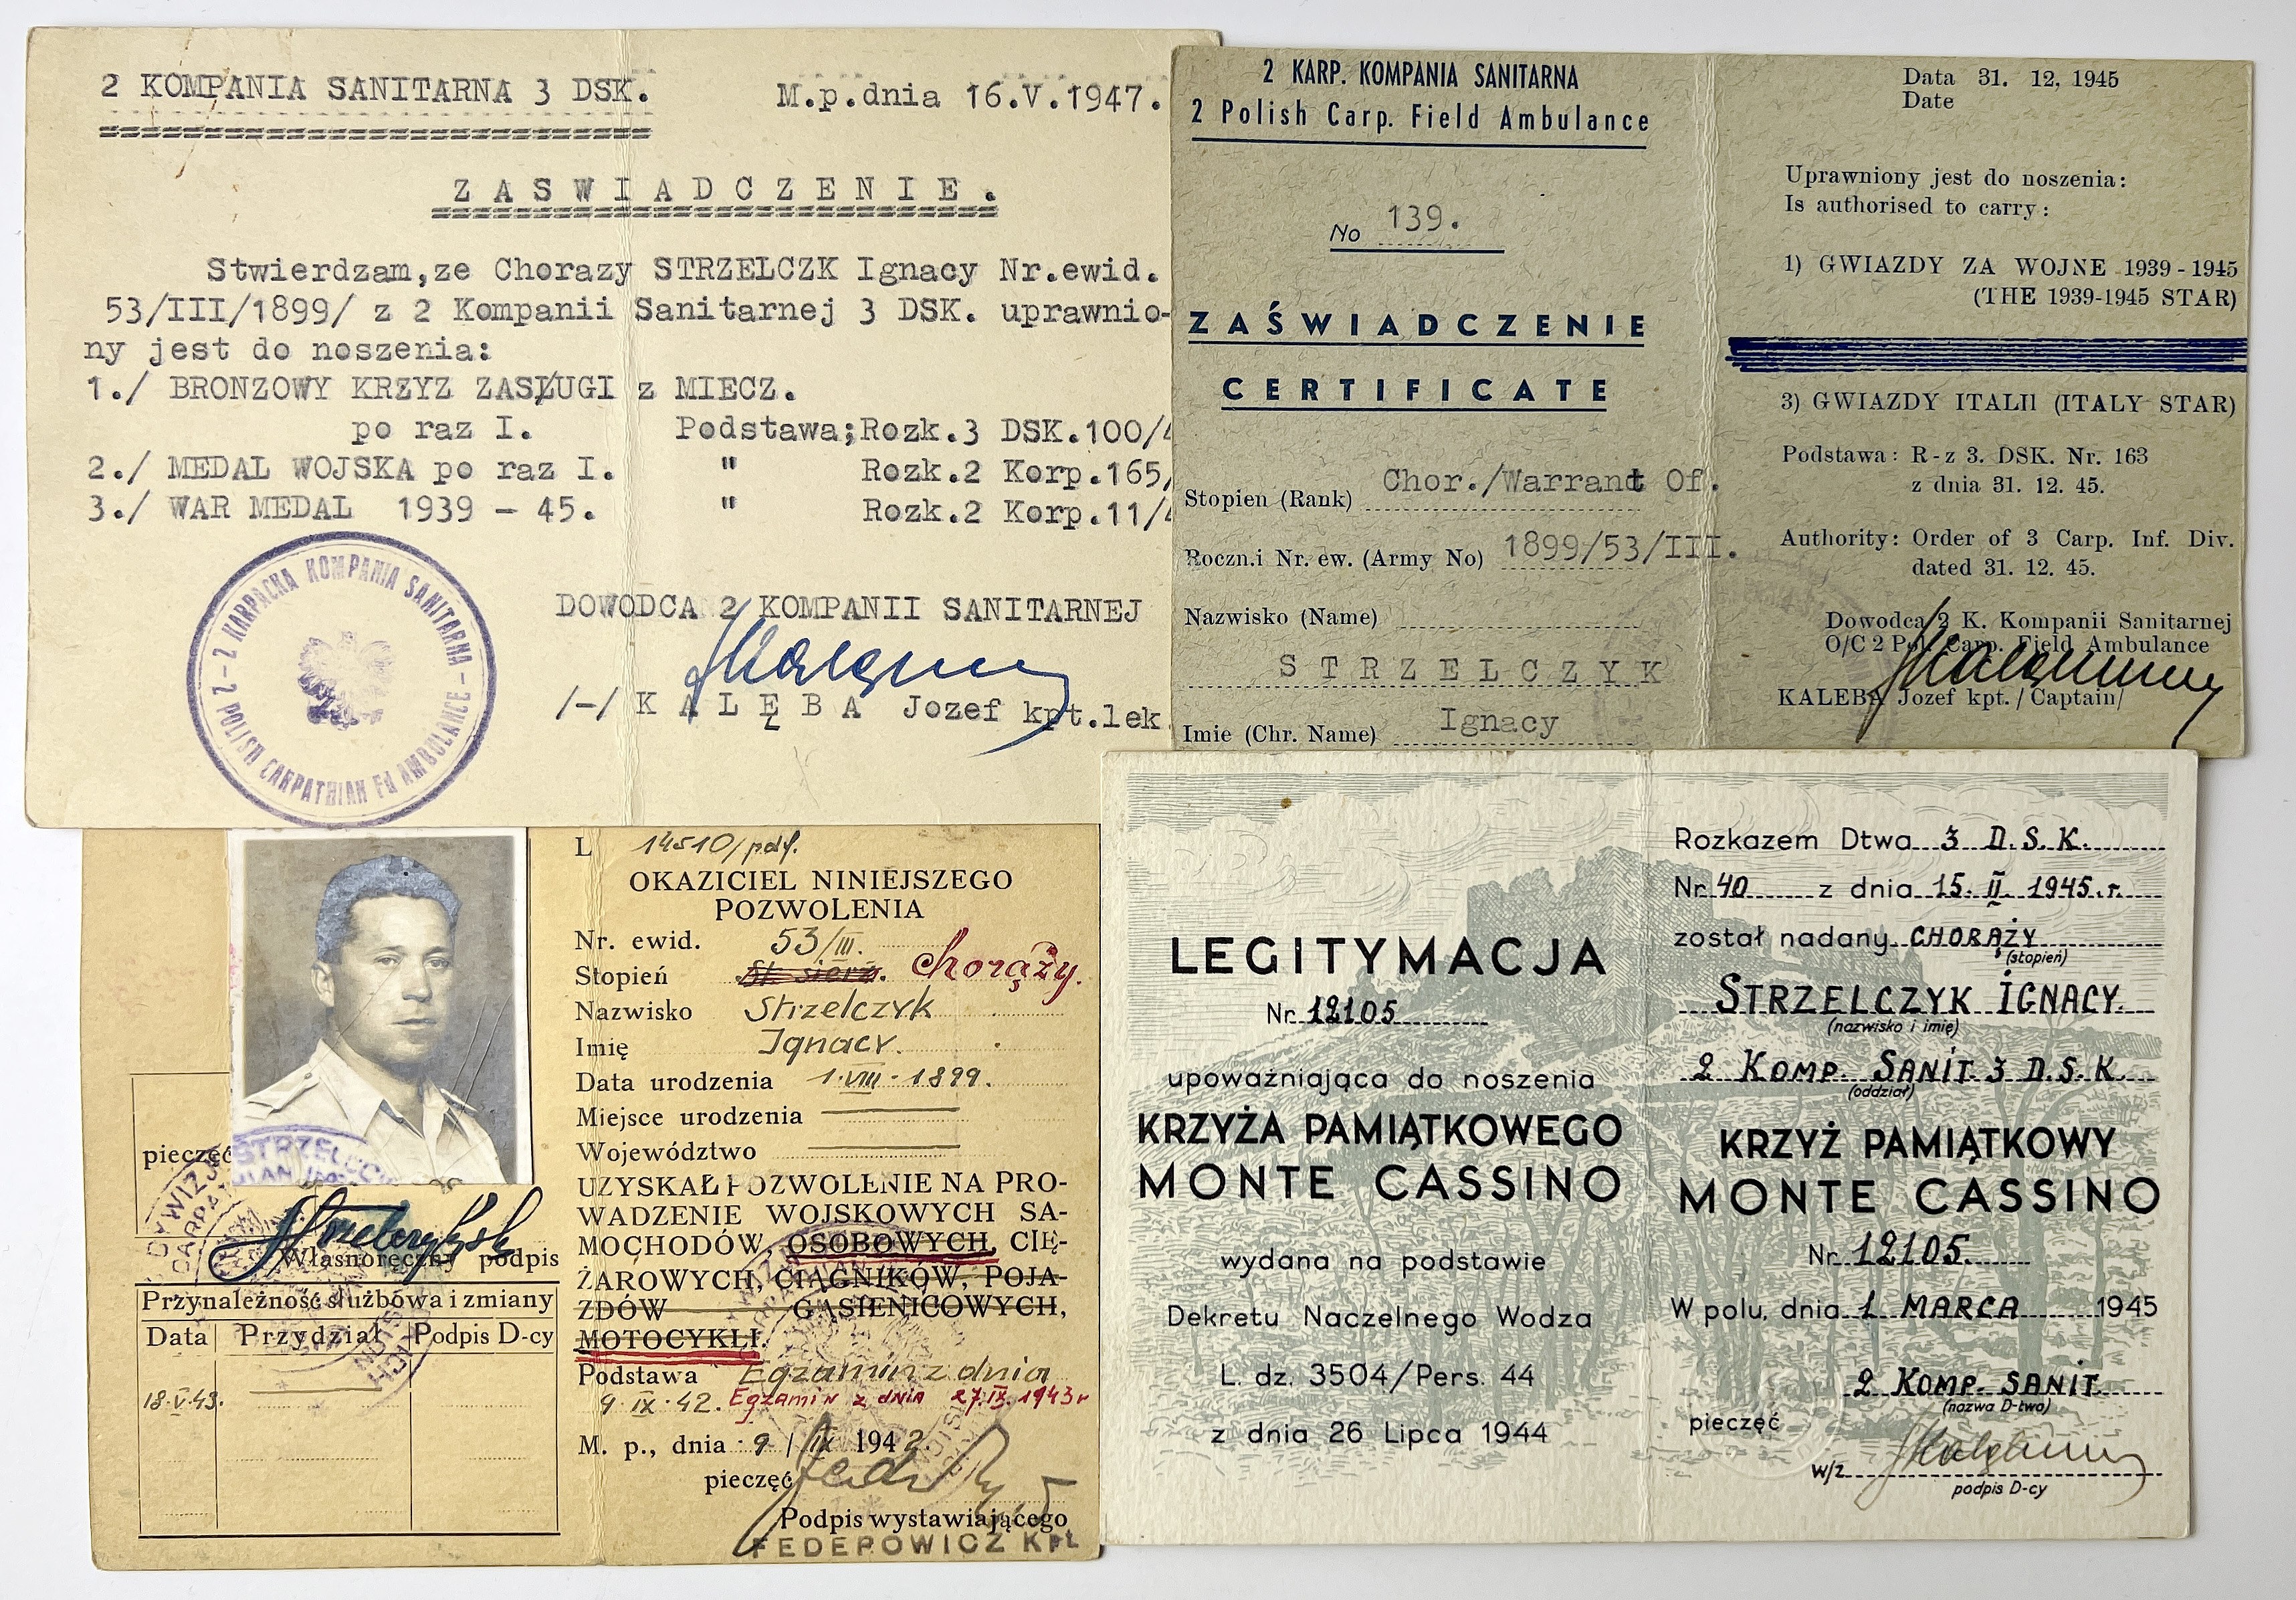 2 KOMPANIA SANITARNA 3 DSK.
M.p.dnia 16.V.1947.
ZASWIADCZENIE.
Stwierdzam,ze Chorazy STRZELCZK Ignacy Nr.ewid.
53/III/1899/ z 2 Kompanii Sanitarnej 3 DSK. uprawnio-
ny jest do noszenia:
1./ BRONZOWY KRZYZ ZASŁUGI z MIECZ.
po raz I. Podstawa;Rozk.3 DSK.100/4
2./ MEDAL WOJSKA po raz I. " Rozk.2 Korp.165/
3./ WAR MEDAL 1939 - 45. " Rozk.2 Korp.11/4
DOWODCA 2 KOMPANII SANITARNEJ
/-/ KALĘBA Jozef kpt.lek
2 KARPACKA KOMPANIA SANITARNA
2 POLISH CARPATHIAN Fd AMBULANCE
2 KARP. KOMPANIA SANITARNA
2 Polish Carp. Field Ambulance
No 139.
ZAŚWIADCZENIE
CERTIFICATE
Stopien (Rank) Chor./Warrant Of.
Roczn.i Nr. ew. (Army No) 1899/53/III.
Nazwisko (Name)
STRZELCZYK
Imie (Chr. Name) Ignacy
Data 31. 12, 1945
Date
Uprawniony jest do noszenia:
Is authorised to carry:
1) GWIAZDY ZA WOJNE 1939-1945
(THE 1939-1945 STAR)
3) GWIAZDY ITALII (ITALY STAR)
Podstawa: R-z 3. DSK. Nr. 163
z dnia 31. 12. 45.
Authority: Order of 3 Carp. Inf. Div.
dated 31. 12. 45.
Dowodca 2 K. Kompanii Sanitarnej
O/C 2 Pol. Carp. Field Ambulance
KALEBA Jozef kpt. /Captain/
pieczęć
STRZELEC
Strzelczyk
Własnoręczny podpis
Przynależność służbowa i zmiany
Data Przydział Podpis D-cy
18.V.43.
L 14510/pdf.
OKAZICIEL NINIEJSZEGO
POZWOLENIA
Nr. ewid. 53/III.
Stopień St. sierż. chorąży.
Nazwisko Strzelczyk
Imię Ignacy.
Data urodzenia 1.VIII.1899.
Miejsce urodzenia
Województwo
UZYSKAŁ POZWOLENIE NA PRO-
WADZENIE WOJSKOWYCH SA-
MOCHODÓW, OSOBOWYCH, CIĘ-
ŻAROWYCH, CIĄGNIKÓW, POJA-
ZDÓW GĄSIENICOWYCH,
MOTOCYKLI.
Podstawa Egzamin z dnia
9.IX.42. Egzamin z dnia 27.IX.1943r
M. p., dnia 9/IX 1942
pieczęć
Podpis wystawiającego
FEDEROWICZ Kpt
LEGITYMACJA
Nr. 12105
upoważniająca do noszenia
KRZYŻA PAMIĄTKOWEGO
MONTE CASSINO
wydana na podstawie
Dekretu Naczelnego Wodza
L. dz. 3504/Pers. 44
z dnia 26 Lipca 1944
Rozkazem Dtwa 3 D.S.K.
Nr. 40 z dnia 15. II. 1945.r.
został nadany CHORĄŻY
(stopień)
STRZELCZYK IGNACY.
(nazwisko i imię)
2 KOMP. SANIT. 3 D.S.K.
(oddział)
KRZYŻ PAMIĄTKOWY
MONTE CASSINO
Nr. 12105.
W polu, dnia 1 MARCA 1945
2 KOMP. SANIT
(nazwa D-two)
pieczęć
w/z
podpis D-cy